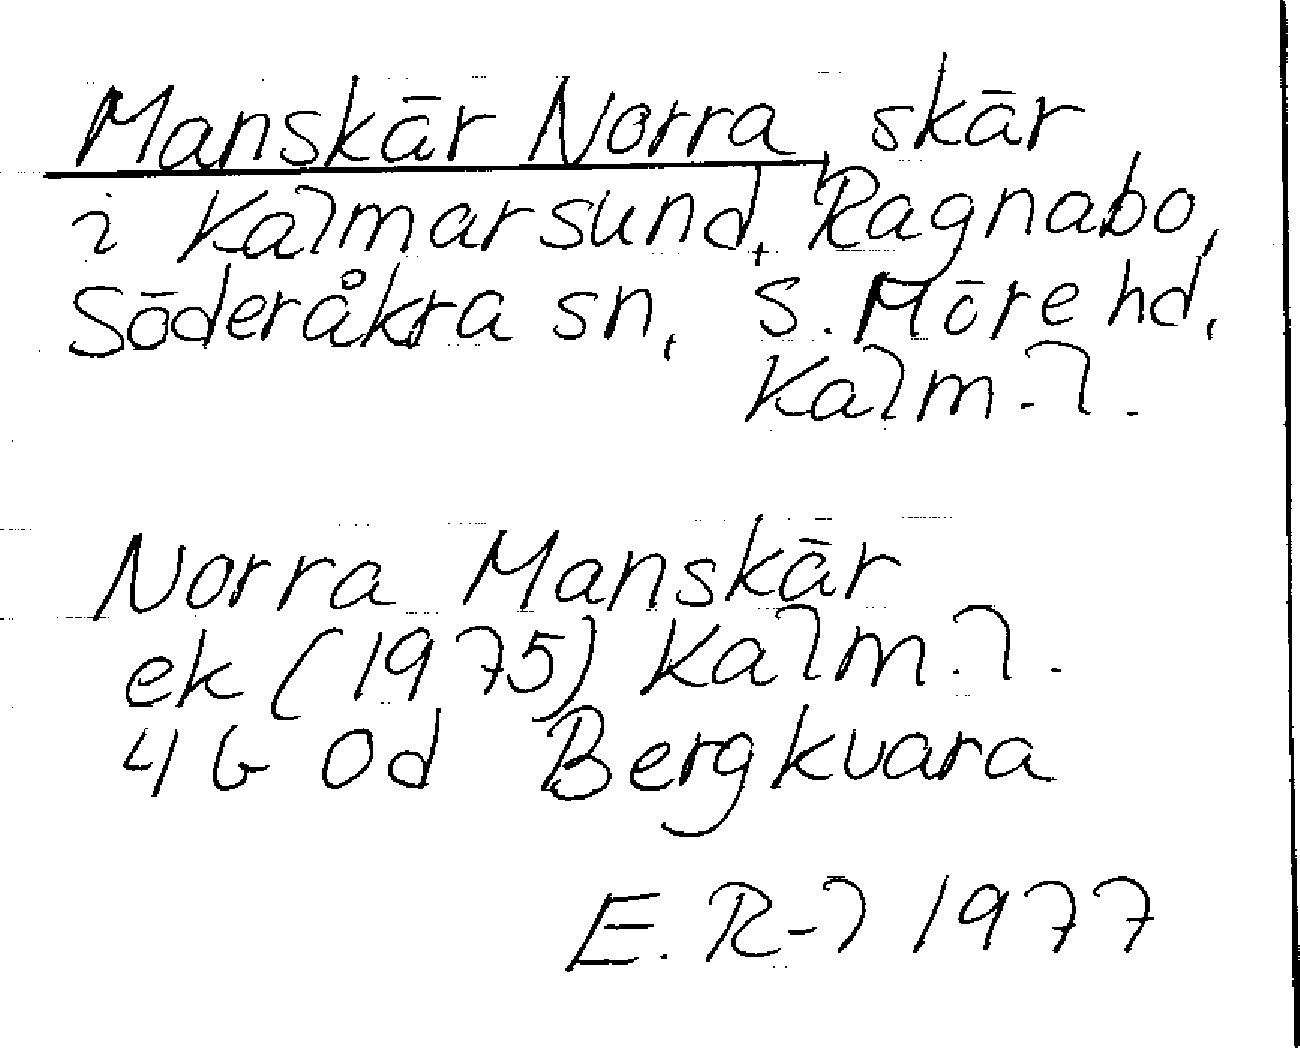 Manskär Norra, skär
i Kalmarsund, Ragnabo,
Söderåkra sn, S. Möre hd,
Kalm. l.
Norra Manskär
ek (1975) Kalm. l.
4 G Od Bergkvara
E. R-l 1977